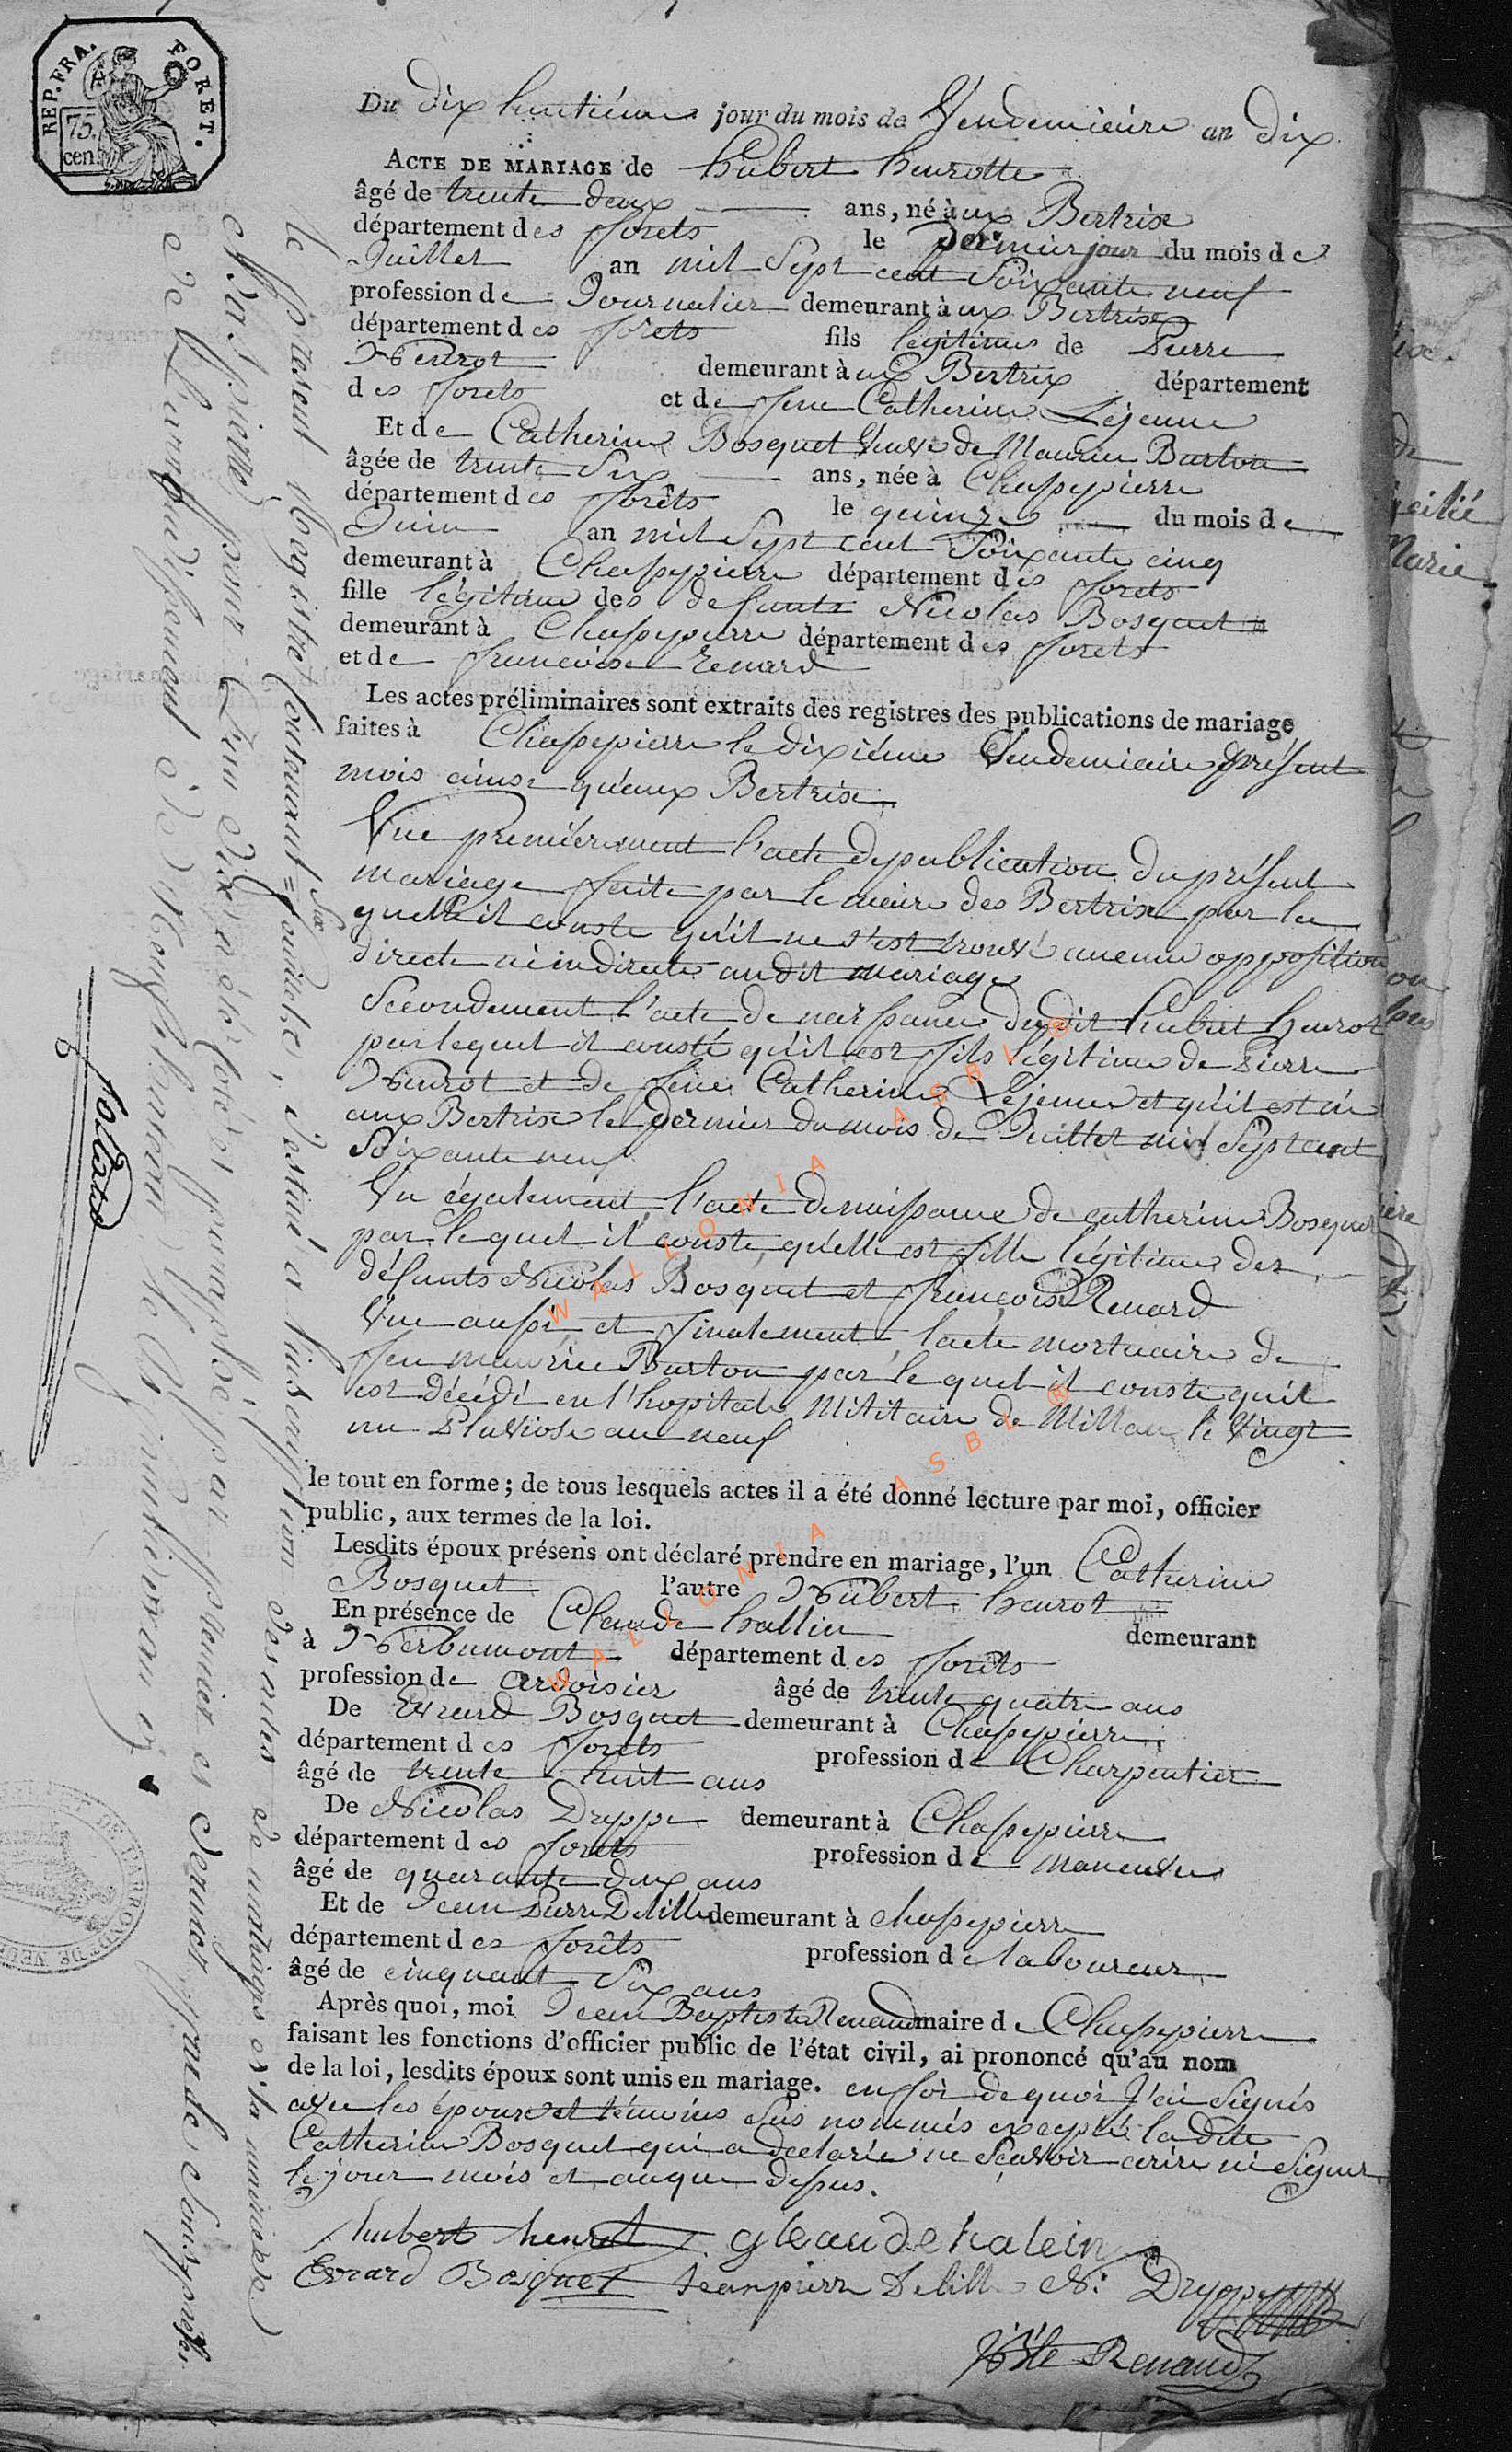 REP. FRA. FORET.
75.
cen.
Du dix huitiéme jour du mois de Vendemieire an dix
ACTE DE MARIAGE de hubert heurotte
âgé de trente deux ans, né à ux Bertrix
département des forets le dernier jour du mois de
Juillet an mil Sept cent Soixante neuf
profession de Journalier demeurant à ux Bertrix
département des forets fils légitime de Pierre
Heurot demeurant à ux Bertrix département
des forets et de feue Catherine Lejeune
Et de Catherine Bosquet Veuve de Maurice Burton
âgée de trente Six ans, née à Chassepierre
département des forêts le quinze du mois de
Juin an mil Sept cent Soixante cinq
demeurant à Chassepierre département des forets
fille légitime des defunts Nicolas Bosquet
demeurant à Chassepierre département des forets
et de francoise Renard
Les actes préliminaires sont extraits des registres des publications de mariage
faites à Chassepierre le dixiéme Vendemieire présent
mois ainsi qu'aux Bertrix
Vue premiérement l'acte de publication du présent
mariage faite par le maire des Bertrix par la
quelle il conste qu'il ne s'est trouvé aucune opposition
directe ni indirecte audit mariage
Secondement l'acte de naissance dudit hubert heurot
par lequel il conste qu'il est fils légitime de Pierre
Heurot et de feue Catherine Lejeune et qu'il est né
aux Bertrix le dernier du mois de Juillet mil Sept cent
Soixante neuf
Vu également l'acte de naissance de catherine Bosquet
par lequel il conste, qu'elle est fille légitime des
défunts Nicolas Bosquet et françoise Renard
Vue aussi et finalement, l'acte mortuaire de
feu maurice Burton par le quel il conste qu'il
est décédé en l'hopital Militaire de Millan le Vingt
un Pluviose an neuf
le tout en forme; de tous lesquels actes il a été donné lecture par moi, officier
public, aux termes de la loi.
Lesdits époux présens ont déclaré prendre en mariage, l'un Catherine
Bosquet l'autre Hubert heurot
En présence de Claude hallin demeurant
à Herbumont département des forêts
profession de ardoisier âgé de trente quatre ans
De Evrard Bosquet demeurant à Chassepierre
département des forets profession de Charpentier
âgé de trente huit ans
De Nicolas Dryppe demeurant à Chassepierre
département des forets profession de maneuvre
âgé de quarante deux ans
Et de Jean Pierre Delille demeurant à chassepierre
département des forêts profession de laboureur
âgé de cinquante Six ans
Après quoi, moi Jean Baptiste Renaud maire de Chassepierre
faisant les fonctions d'officier public de l'état civil, ai prononcé qu'au nom
de la loi, lesdits époux sont unis en mariage. en foi de quoi J'ai Signés
avec les époux et témoins Sus nommés excepté ladite
Catherine Bosquet qui a declarée ne Sçavoir ecrire ni Signer
le jour mois et an que dessus.
hubert heurot gleaude halein
Evrard Bosquet jean pierre Delille N: Dryppe
JBte Renaud
le présent Registre Contenant Six feuilles, destiné à l'inscription des actes de mariages de la mairie de
Chassepierre, pour l'an dix a été Coté et paraphé par premier et dernier,
de l'arrondissement de Neufchateau
WALLONIA ASBL ®
WALLONIA ASBL ®